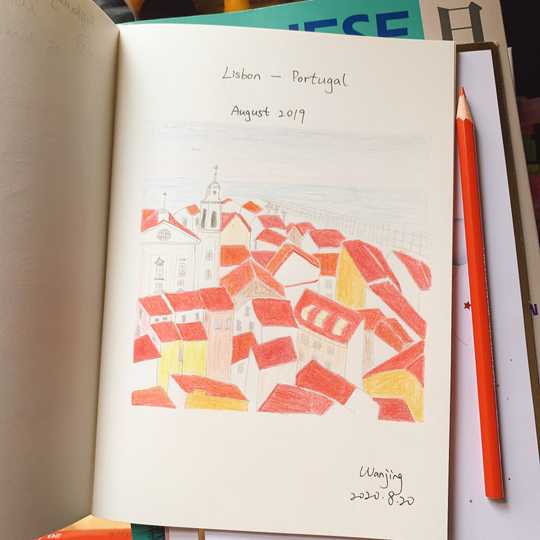 NESE
日
Lisbon - Portugal
August 2019
Wanjing
2020.8.20